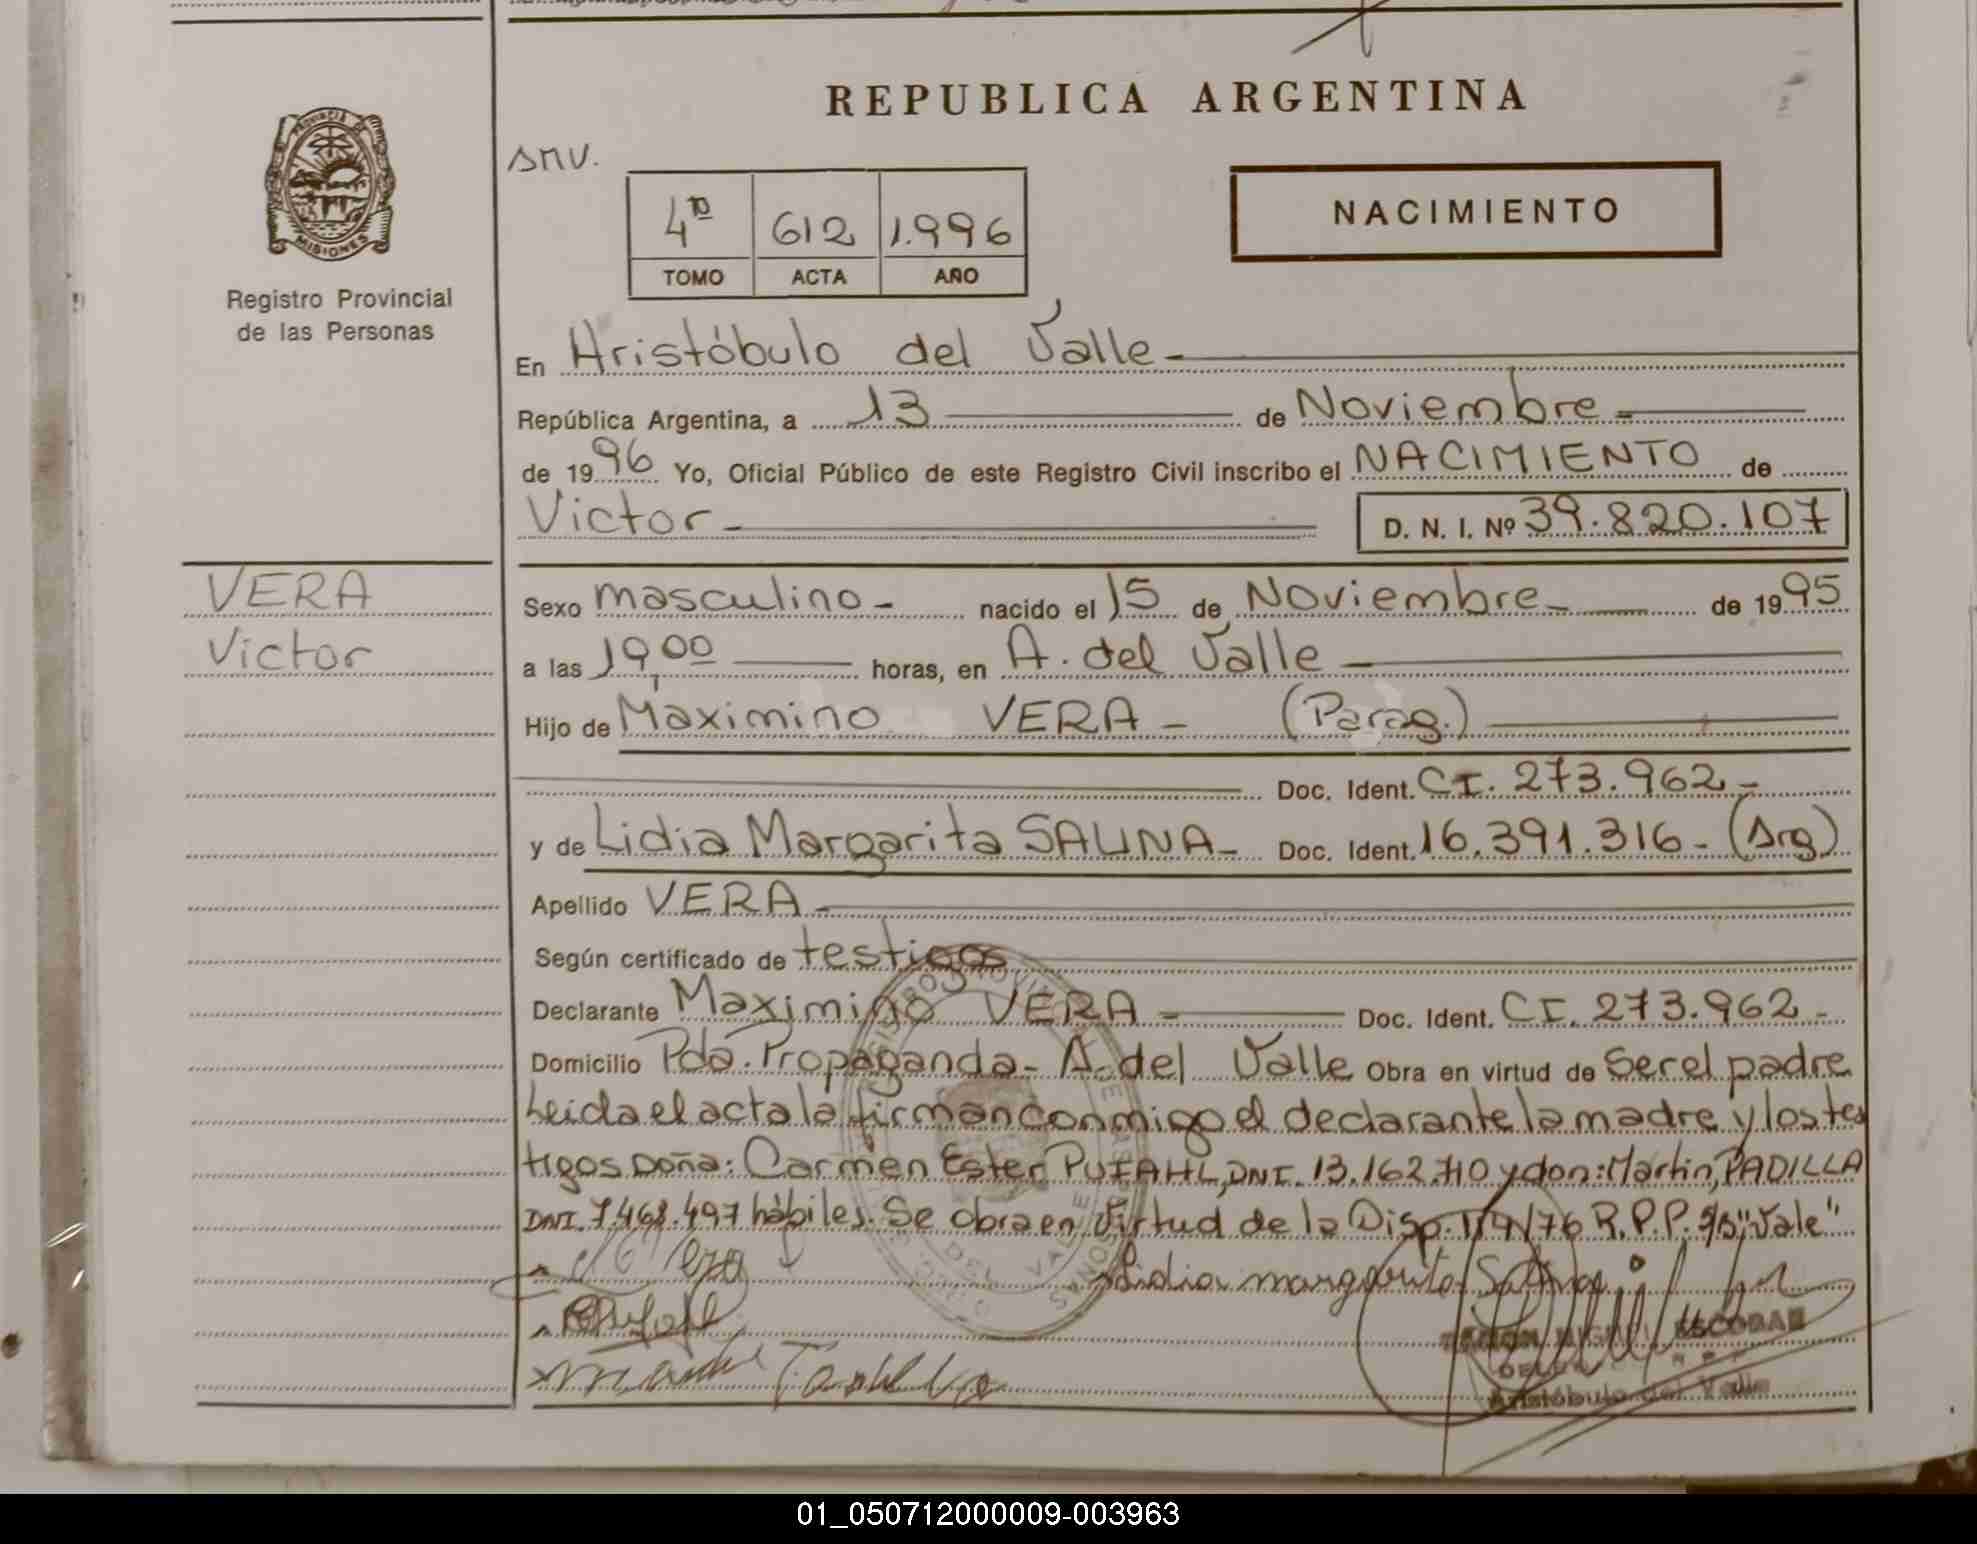 REPUBLICA ARGENTINA
SMV.
PROVINCIA DE
MISIONES
Registro Provincial
de las Personas
4to 612 1.996
TOMO ACTA AÑO
NACIMIENTO
En Aristóbulo del Valle-
República Argentina, a 13 de Noviembre-
de 1996 Yo, Oficial Público de este Registro Civil inscribo el NACIMIENTO de
Victor- D. N. I. Nº 39.820.107
VERA
Victor
Sexo masculino- nacido el 15 de Noviembre- de 1995
a las 19,00 horas, en A. del Valle
Hijo de Maximino VERA- (Parag.)
Doc. Ident. CI. 273.962-
y de Lidia Margarita SALINA- Doc. Ident. 16.391.316- (Arg)
Apellido VERA-
Según certificado de testigos
Declarante Maximino VERA- Doc. Ident. CI. 273.962-
Domicilio Pda. Propaganda- A. del Valle Obra en virtud de Ser el padre
Leida el acta la firman conmigo el declarante la madre y los tes
tigos Doña: Carmen Ester PUFAHL, DNI. 13.162.710 y don: Martin, PADILLA
DNI. 7.468.497 hábiles. Se obra en virtud de la Disp. 114/76 R.P.P. S/B "Vale"
Lidia margarita Salina
RAMON MIGUEL ESCOBAR
Aristóbulo del Valle
01_050712000009-003963